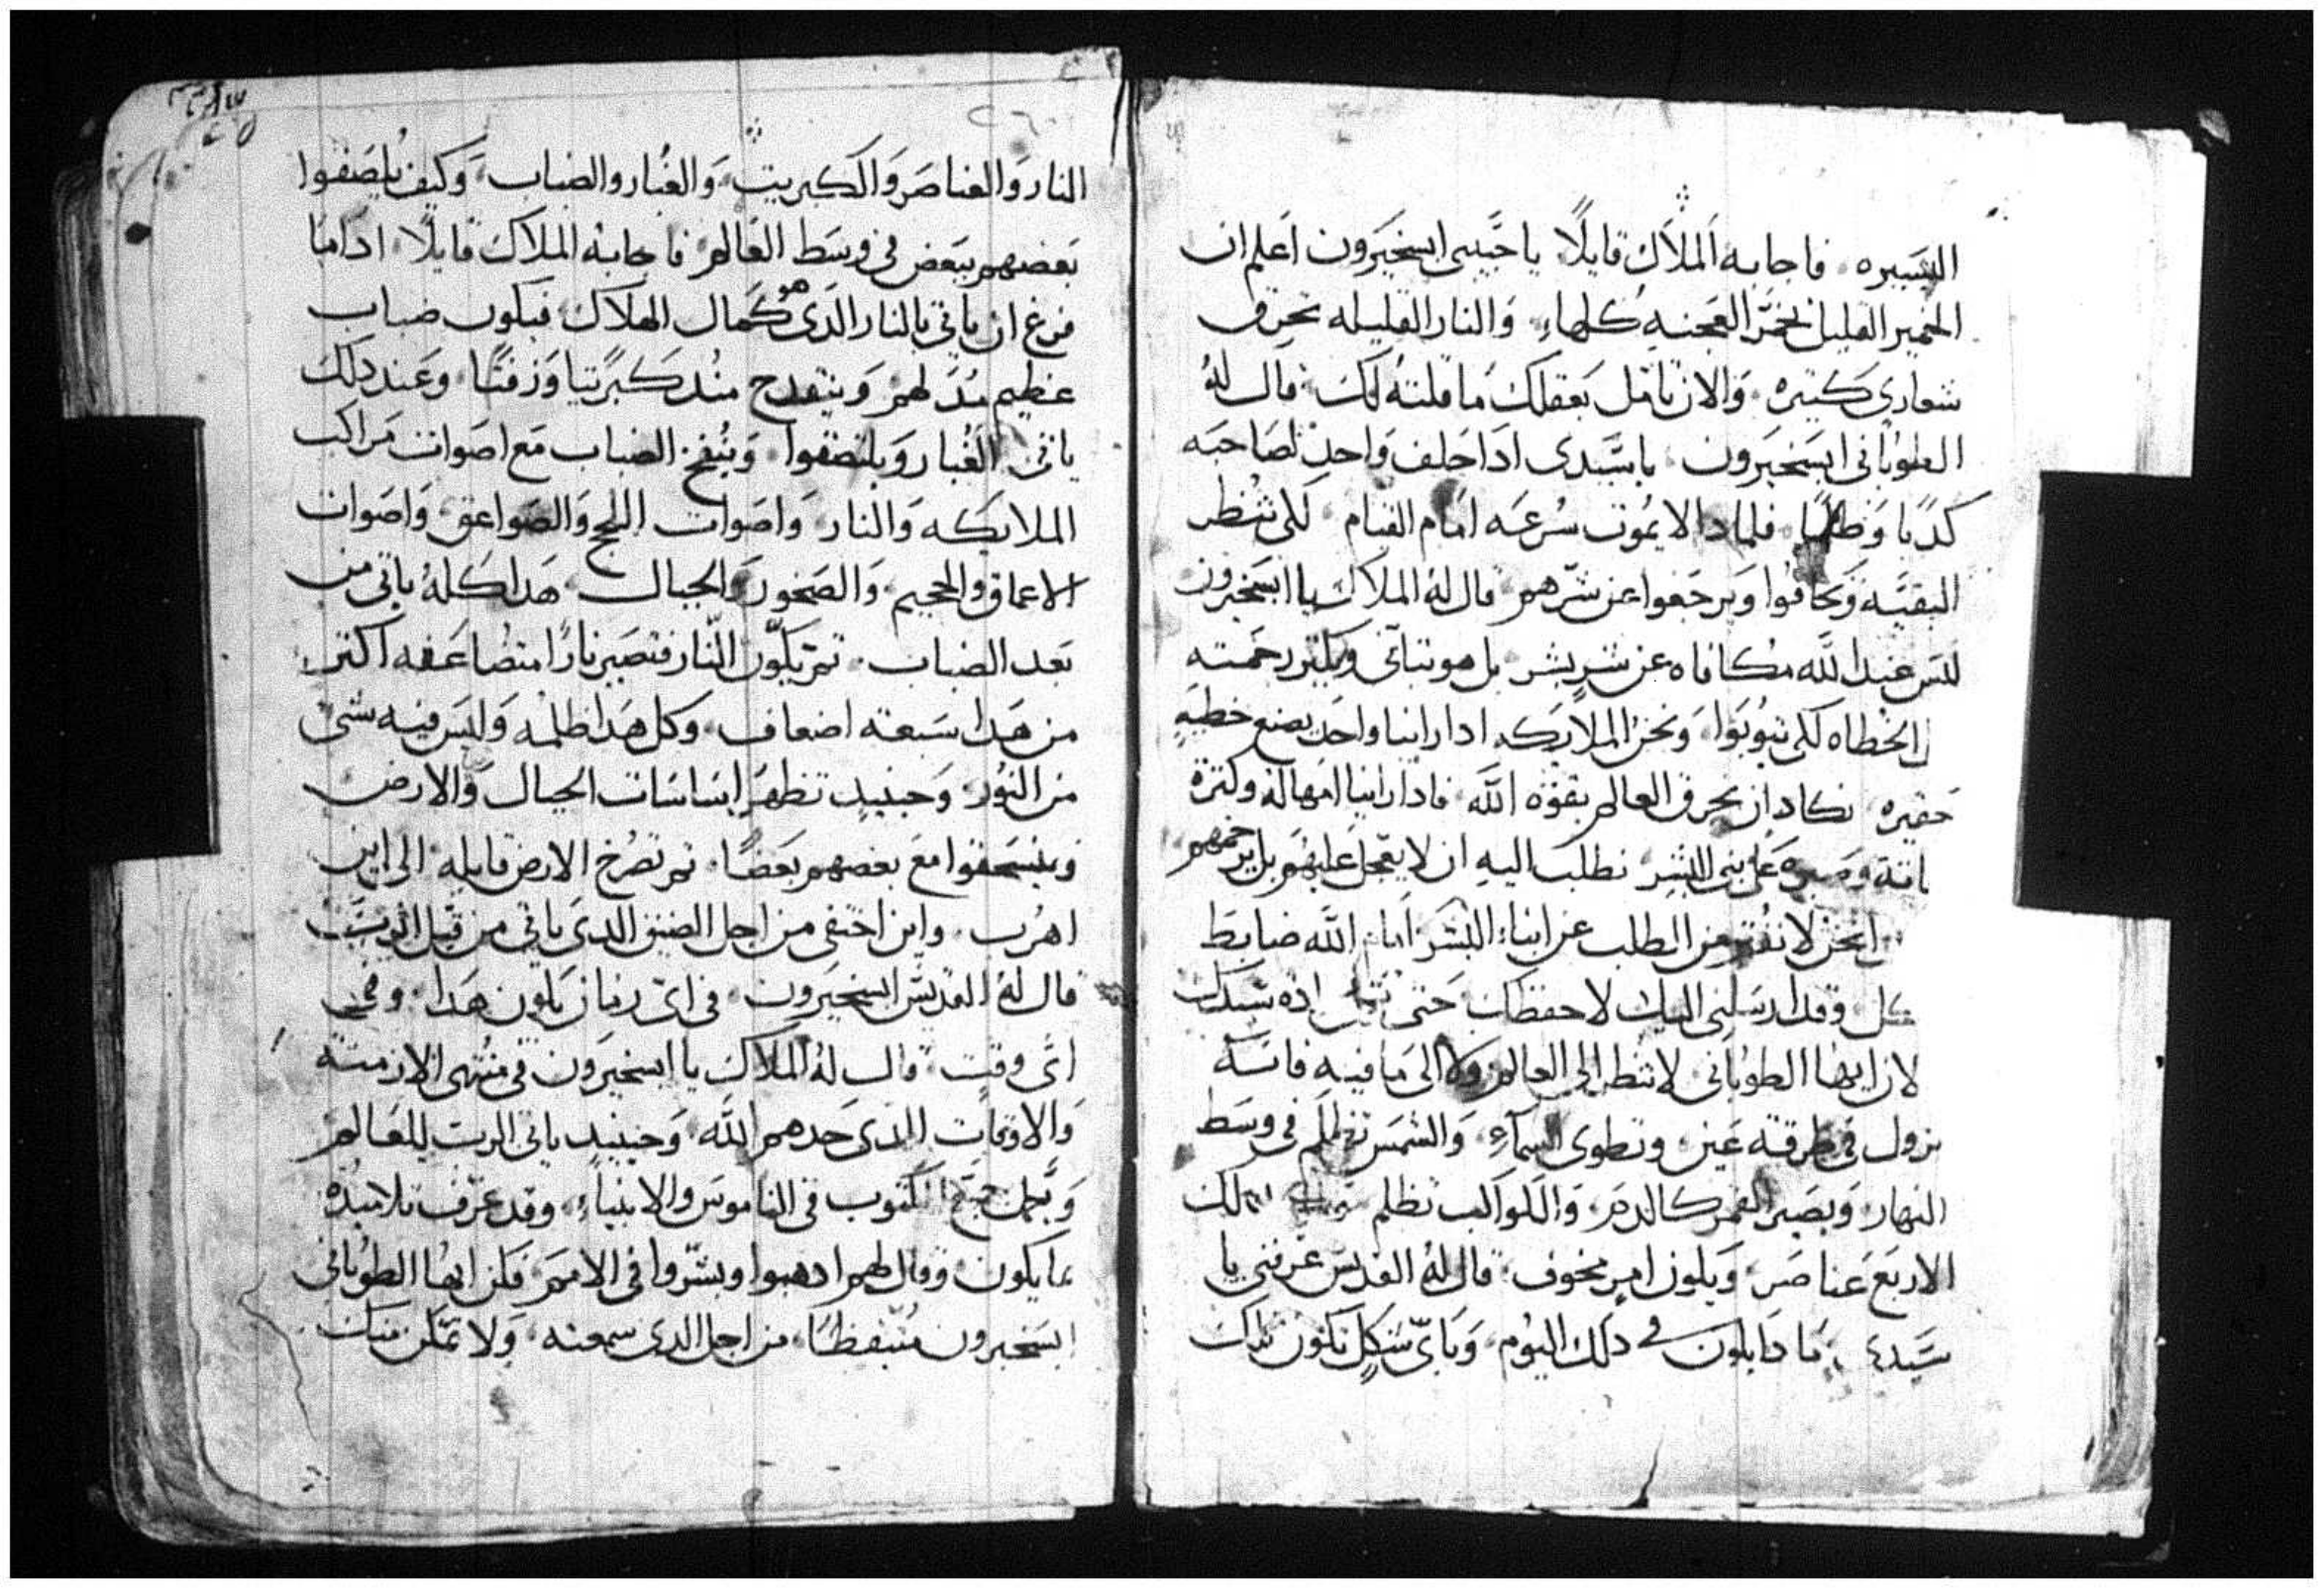 اليسيره فاجابه الملاك قايلًا يا حبيبى ابسخيرون اعلم ان
الخمير القليل يخمّر العجنه كلها والنار القليله تحرق
شعارى كتيره والان تامل بعقلك ما قلته لك قال لهُ
الطوبانى ابسخيرون ياسيدى ادا حلف واحد لصاحبه
كدبًا وظلمًا فلمادا لا يموت سُرعه امام القيام لكى تنظر
البقيّه وتخافوا ويرجعوا عن شرّهم قال لهُ الملاك يا ابسخيرون
ليس عند الله مكافاه عن شر بشر بل هو يتانى وبكتر رحمته
الخطاه لكى يتوبوا ونحن الملايكه ادا راينا واحد يصنع خطيه
حقيره نكاد ان نحرق العالم بقوة الله فادا راينا امهاله وكترة
وصبره على بنى البشر نطلب اليه ان لا يعجل عليهم بل يرحمهم
نحن لا نفتر من الطلب عن ابناء البشر امام الله ضابط
كل وقد ارسلنى اليك لاحفظك حتى
ايها الطوبانى لا تنظر الى العالم ولا الى ما فيه فانه
يزول فى طرفة عين وتطوى السماء والشمس تظلم فى وسط
النهار ويصير القمر كالدم والكواكب تظلم
الاربع عناصر ويكون امر مخوف قال لهُ القديس عرفنى يا
سيدى ما دا يكون فى دلك اليوم وباىّ شكلٍ تكون تلك
٢٦٠
النار والعناصر والكبريت والغُبار والضباب وكيف يلصقوا
بعضهم ببعض فى وسط العالم فاجابهُ الملاك قايلًا ادا ما
فرغ ان ياتى بالنار الدى هو كمال الهلاك فيكون ضباب
عظيم وينقدح منهُ كبريتًا وزفتًا وعند دلك
ياتى الغُبار ويلتصقوا ويُنفخ الضباب مع اصوات مراكب
الملايكه والنار واصوات اللجج والصواعق واصوات
الاعماق والجحيم والصخور والجبال هدا كلهُ ياتى من
بعد الضباب تم يكوّن النّار فتصير نارًا متضاعفه اكتر
من هدا سبعة اضعاف وكل هدا ظلمه وليس فيه شى
من النور وحينيد تظهر اساسات الجبال والارض
وينسحقوا مع بعضهم بعضًا تم تصرُخ الارض قايله الى اين
اهرُب واين اختفى من اجل الضيق الدى ياتى من قبل الرب
قال لهُ القديس ابسخيرون فى اىّ زمان يكون هدا وفى
اىّ وقت قال لهُ الملاك يا ابسخيرون فى منتهى الازمنه
والاوقات الدى حدهم الله وحينيد ياتى الرب للعالم
ويكمل جميع المكتوب فى الناموس والانبياء وقد عرّف تلاميده
بما يكون وقال لهم ادهبوا وبشّروا فى الامم فكن ايها الطوبانى
ابسخيرون متيقظًا من اجل الدى سمعته ولا تمكّن منك